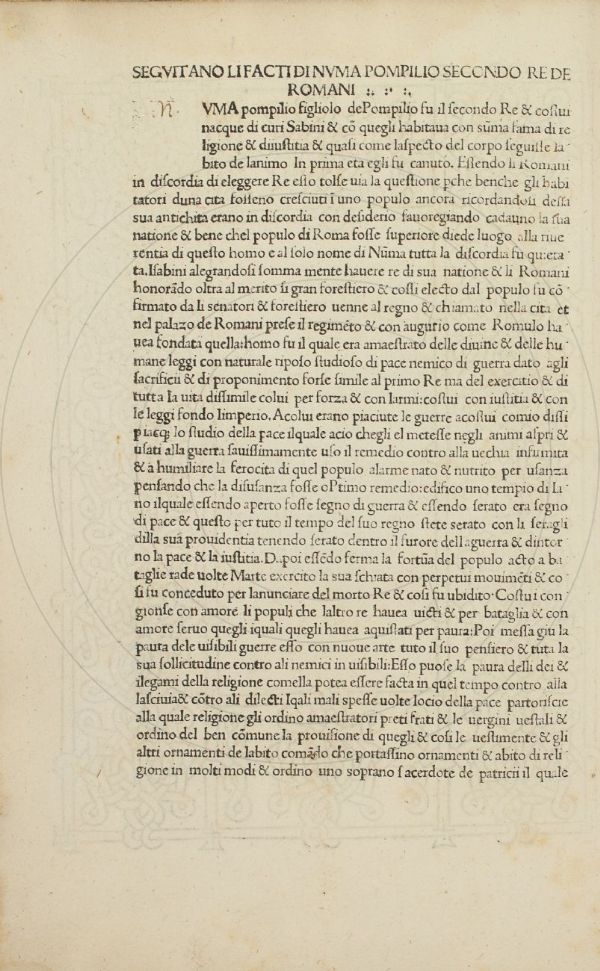 SEGVITANO LI FACTI DI NVMA POMPILIO SECONDO RE DE
ROMANI :. :· :.
N VMA pompilio figliolo dePompilio fu il secondo Re & costui
nacque di curi Sabini & cō quegli habitaua con sūma fama di re
ligione & diiustitia & quasi come laspecto del corpo seguisse la
bito de lanimo In prima eta egli fu canuto. Essendo li Romani
in discordia di eleggere Re esso tolse uia la questione pche benche gli habi
tatori duna cita fosseno cresciuti ī uno populo ancora ricordandosi dessa
sua antichita erano in discordia con desiderio fauoregiando cadauno la sua
natione & bene chel populo di Roma fosse superiore diede luogo alla riue
rentia di questo homo e al solo nome di Nūma tutta la discordia fu quieta
ta. Isabini alegrandosi somma mente hauere re di sua natione & li Romani
honorādo oltra al merito si gran forestiero & cossi electo dal populo fu cō
firmato da li senatori & forestiero uenne al regno & chiamato nella cita et
nel palazo de Romani prese il regimēto & con augurio come Romulo ha
uea fondata quella: homo fu il quale era amaestrato delle diuine & delle hu
mane leggi con naturale riposo studioso di pace nemico di guerra dato agli
sacrificii & di proponimento forse simile al primo Re ma del exercitio & di
tutta la uita dissimile colui per forza & con larmi: costui con iustitia & con
le leggi fondo limperio. Acolui erano piaciute le guerre acostui comio dissi
piacq; lo studio della pace ilquale acio chegli el metesse negli animi aspri &
usati alla guerra sauissimamente uso il remedio contro alla uechia insumita
& a humiliare la ferocita di quel populo alarme nato & nutrito per usanza
pensando che la disusanza fosse oPtimo remedio: edifico uno tempio di Ia
no ilquale essendo aperto fosse segno di guerra & essendo serato era segno
di pace & questo per tuto il tempo del suo regno stete serato con li seragli
dilla sua prouidentia tenendo serato dentro il furore dellaguerra & dintor
no la pace & la iustitia. D..poi essēdo ferma la fortūa del populo acto a ba
taglie rade uolte Marte exercito la sua schrata con perpetui mouimēti & co
si fu conceduto per lanunciare del morto Re & cosi fu ubidito· Costui con
gionse con amore li populi che laltro re hauea uicti & per bataglia & con
amore seruo quegli iquali quegli hauea aquistati per paura: Poi messa giu la
paura dele uisibili guerre esso con nuoue arte tuto il suo pensiero & tuta la
sua sollicitudine contro ali nemici in uisibili: Esso puose la paura delli dei &
ilegami della religione comella potea essere facta in quel tempo contro alla
lasciuia & cōtro ali dilecti Iqali mali spesse uolte locio della pace partoriscie
alla quale religione gli ordino amaestratori preti frati & le uergini uestali &
ordino del ben cōmune la prouisione di quegli & cosi le uestimente & gli
altri ornamenti de labito comādo che portassino ornamenti & abito di reli
gione in molti modi & ordino uno soprano sacerdote de patricii il quale